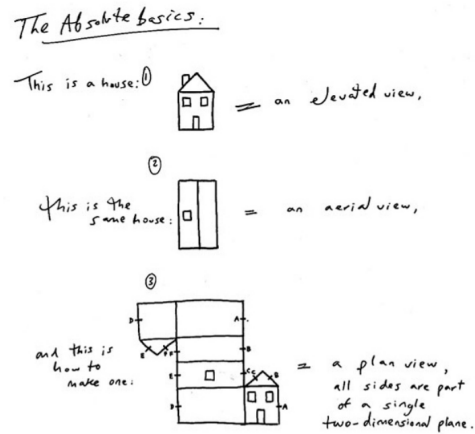 The Absolute basics:
This is a house: ①
= an elevated view,
②
this is the
same house:
= an aerial view,
③
and this is
how to
make one:
= a plan view,
all sides are part
of a single
two-dimensional plane.
D
A
E
F
B
E
C
C
B
D
A